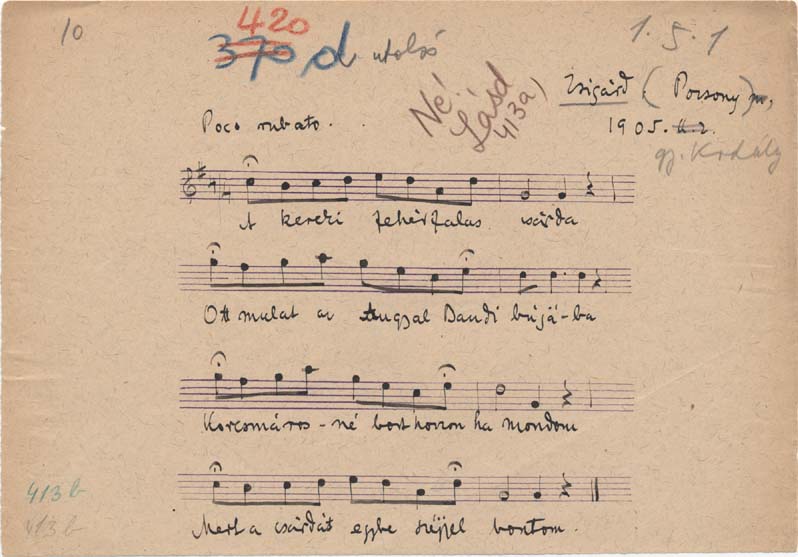 10
420
370 d utolsó
1.5.1
Né! Lásd
413a)
Zsigárd (Pozsony) m,
1905. II. 2.
gy. Kodály
Poco rubato.
A kereki fehérfalas csárda
Ott mulat az Angyal Bandi bújá-ba
Korcsmáros-né bort hozzon ha mondom
Mert a csárdát egybe széjjel bontom.
413 b
413 b